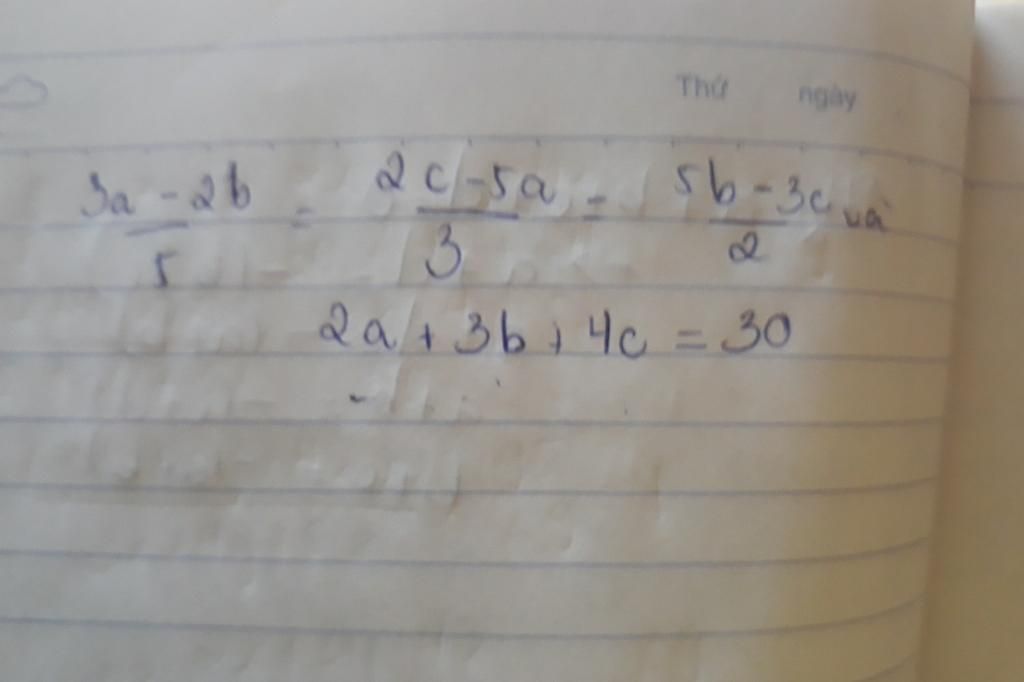 Thứ ngày
3a - 2b / 5 = 2c - 5a / 3 = 5b - 3c / 2 và
2a + 3b + 4c = 30